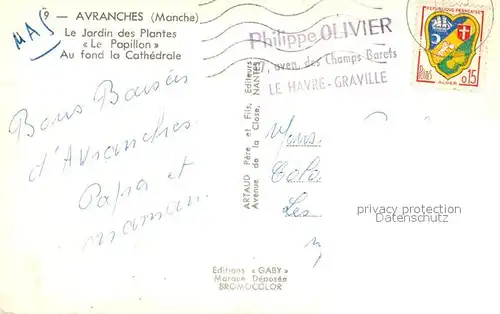 9 — AVRANCHES (Manche)
Le Jardin des Plantes
« Le Papillon »
Au fond la Cathédrale
MAS
Bons Baisers
d'Avranches.
Papa et
maman.
ARTAUD Père et Fils, Editeurs
Avenue de la Close, NANTES
Editions « GABY »
Marque Déposée
BROMOCOLOR
Philippe OLIVIER
aven. des Champs Barets
LE HAVRE - GRAVILLE
REPUBLIQUE FRANÇAISE
POSTES 0,15
ALGER
Mons
Colo
Les
privacy protection